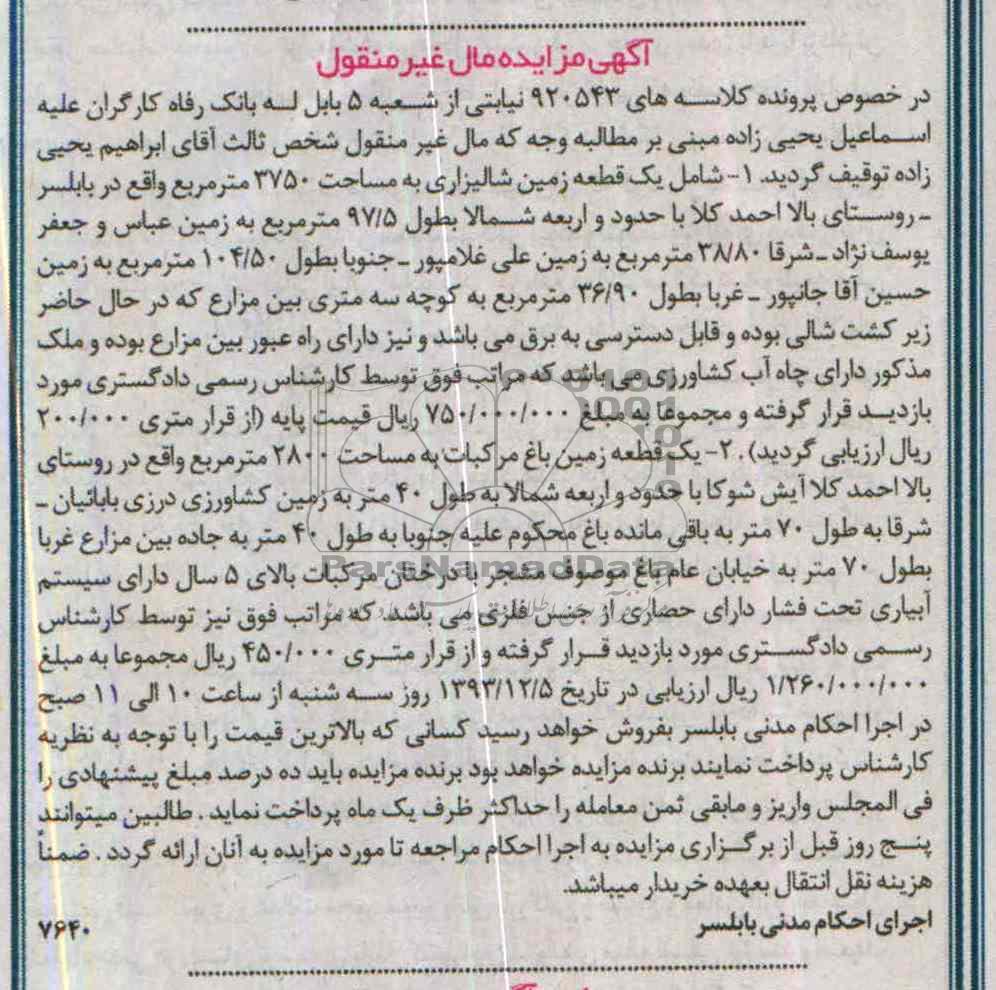 آگهی مزایده مال غیر منقول
در خصوص پرونده کلاسه های ۹۲۰۵۴۳ نیابتی از شعبه ۵ بابل له بانک رفاه کارگران علیه
اسماعیل یحیی زاده مبنی بر مطالبه وجه که مال غیر منقول شخص ثالث آقای ابراهیم یحیی
زاده توقیف گردید. ۱- شامل یک قطعه زمین شالیزاری به مساحت ۳۷۵۰ مترمربع واقع در بابلسر
ـ روستای بالا احمد کلا با حدود و اربعه شمالا بطول ۹۷/۵ مترمربع به زمین عباس و جعفر
یوسف نژاد ـ شرقا ۳۸/۸۰ مترمربع به زمین علی غلامپور ـ جنوبا بطول ۱۰۴/۵۰ مترمربع به زمین
حسین آقا جانپور ـ غربا بطول ۳۶/۹۰ مترمربع به کوچه سه متری بین مزارع که در حال حاضر
زیر کشت شالی بوده و قابل دسترسی به برق می باشد و نیز دارای راه عبور بین مزارع بوده و ملک
مذکور دارای چاه آب کشاورزی می باشد که مراتب فوق توسط کارشناس رسمی دادگستری مورد
بازدید قرار گرفته و مجموعا به مبلغ ۷۵۰/۰۰۰/۰۰۰ ریال قیمت پایه (از قرار متری ۲۰۰/۰۰۰
ریال ارزیابی گردید). ۲- یک قطعه زمین باغ مرکبات به مساحت ۲۸۰۰ مترمربع واقع در روستای
بالا احمد کلا آیش شوکا با حدود و اربعه شمالا به طول ۴۰ متر به زمین کشاورزی درزی بابائیان ـ
شرقا به طول ۷۰ متر به باقی مانده باغ محکوم علیه جنوبا به طول ۴۰ متر به جاده بین مزارع غربا
بطول ۷۰ متر به خیابان عام باغ موصوف مشجر با درختان مرکبات بالای ۵ سال دارای سیستم
آبیاری تحت فشار دارای حصاری از جنس فلزی می باشد. که مراتب فوق نیز توسط کارشناس
رسمی دادگستری مورد بازدید قرار گرفته و از قرار متری ۴۵۰/۰۰۰ ریال مجموعا به مبلغ
۱/۲۶۰/۰۰۰/۰۰۰ ریال ارزیابی در تاریخ ۱۳۹۳/۱۲/۵ روز سه شنبه از ساعت ۱۰ الی ۱۱ صبح
در اجرا احکام مدنی بابلسر بفروش خواهد رسید کسانی که بالاترین قیمت را با توجه به نظریه
کارشناس پرداخت نمایند برنده مزایده خواهد بود برنده مزایده باید ده درصد مبلغ پیشنهادی را
فی المجلس واریز و مابقی ثمن معامله را حداکثر ظرف یک ماه پرداخت نماید. طالبین میتوانند
پنج روز قبل از برگزاری مزایده به اجرا احکام مراجعه تا مورد مزایده به آنان ارائه گردد. ضمناً
هزینه نقل انتقال بعهده خریدار میباشد.
اجرای احکام مدنی بابلسر ۷۶۴۰
ParsNamadData